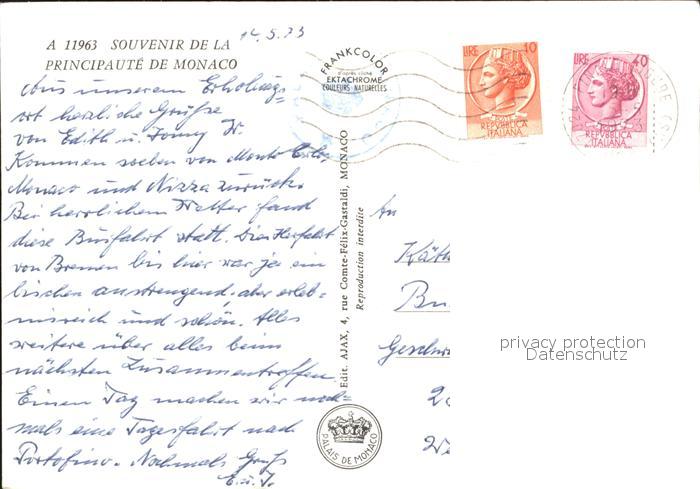 14.5.73
A 11963 SOUVENIR DE LA
PRINCIPAUTÉ DE MONACO
FRANKCOLOR
d'après cliché
EKTACHROME
COULEURS NATURELLES
LIRE 10
POSTE
REPVBBLICA
ITALIANA
LIRE 40
POSTE
REPVBBLICA
ITALIANA
Aus unserem Erholungs-
ort herzliche Grüße
von Edith u. Jonny
Kommen soeben von Monte Carlo,
Monaco und Nizza zurück.
Bei herrlichem Wetter fand
diese Busfahrt statt. Die Herfahrt
von Bremen bis hier war ja ein
bischen anstrengend, aber erleb-
nisreich und schön. Alles
weitere über alles beim
nächsten Zusammentreffen.
Einen Tag machen wir noch-
mals eine Tagesfahrt nach
Portofino. Nochmals Gruß
E. u. J.
Edit. AJAX, 4, rue Comte-Félix-Gastaldi, MONACO
Reproduction interdite
PALAIS DE MONACO
An
Käth
privacy protection
Datenschutz